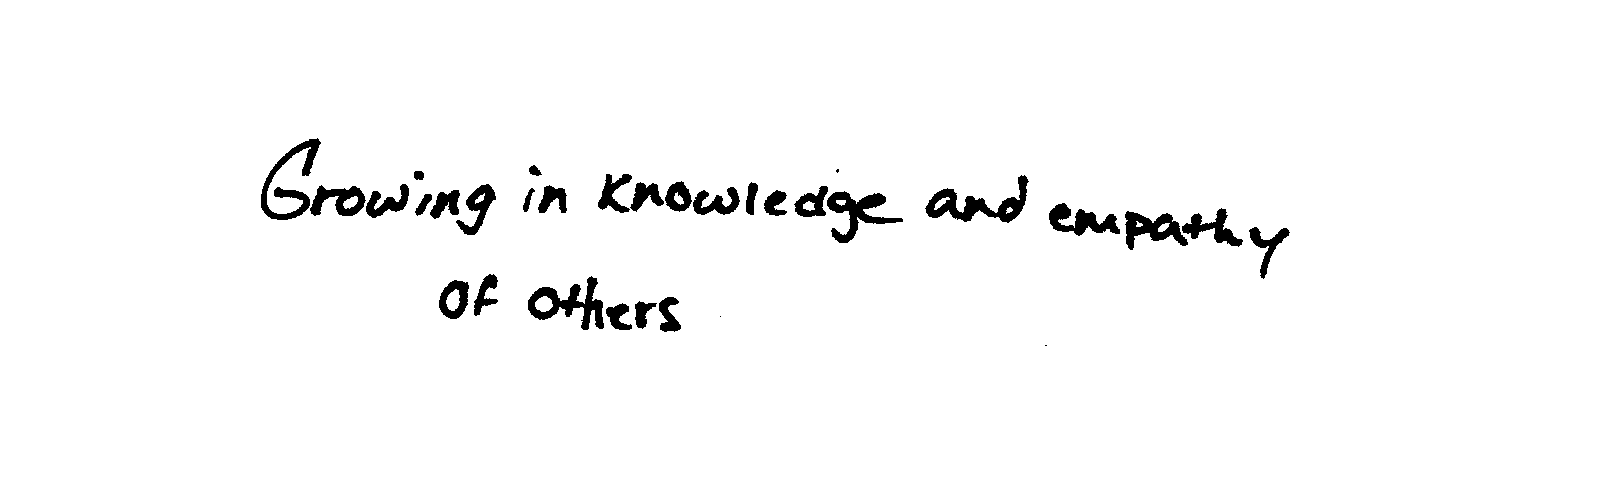 Growing in knowledge and empathy
of others